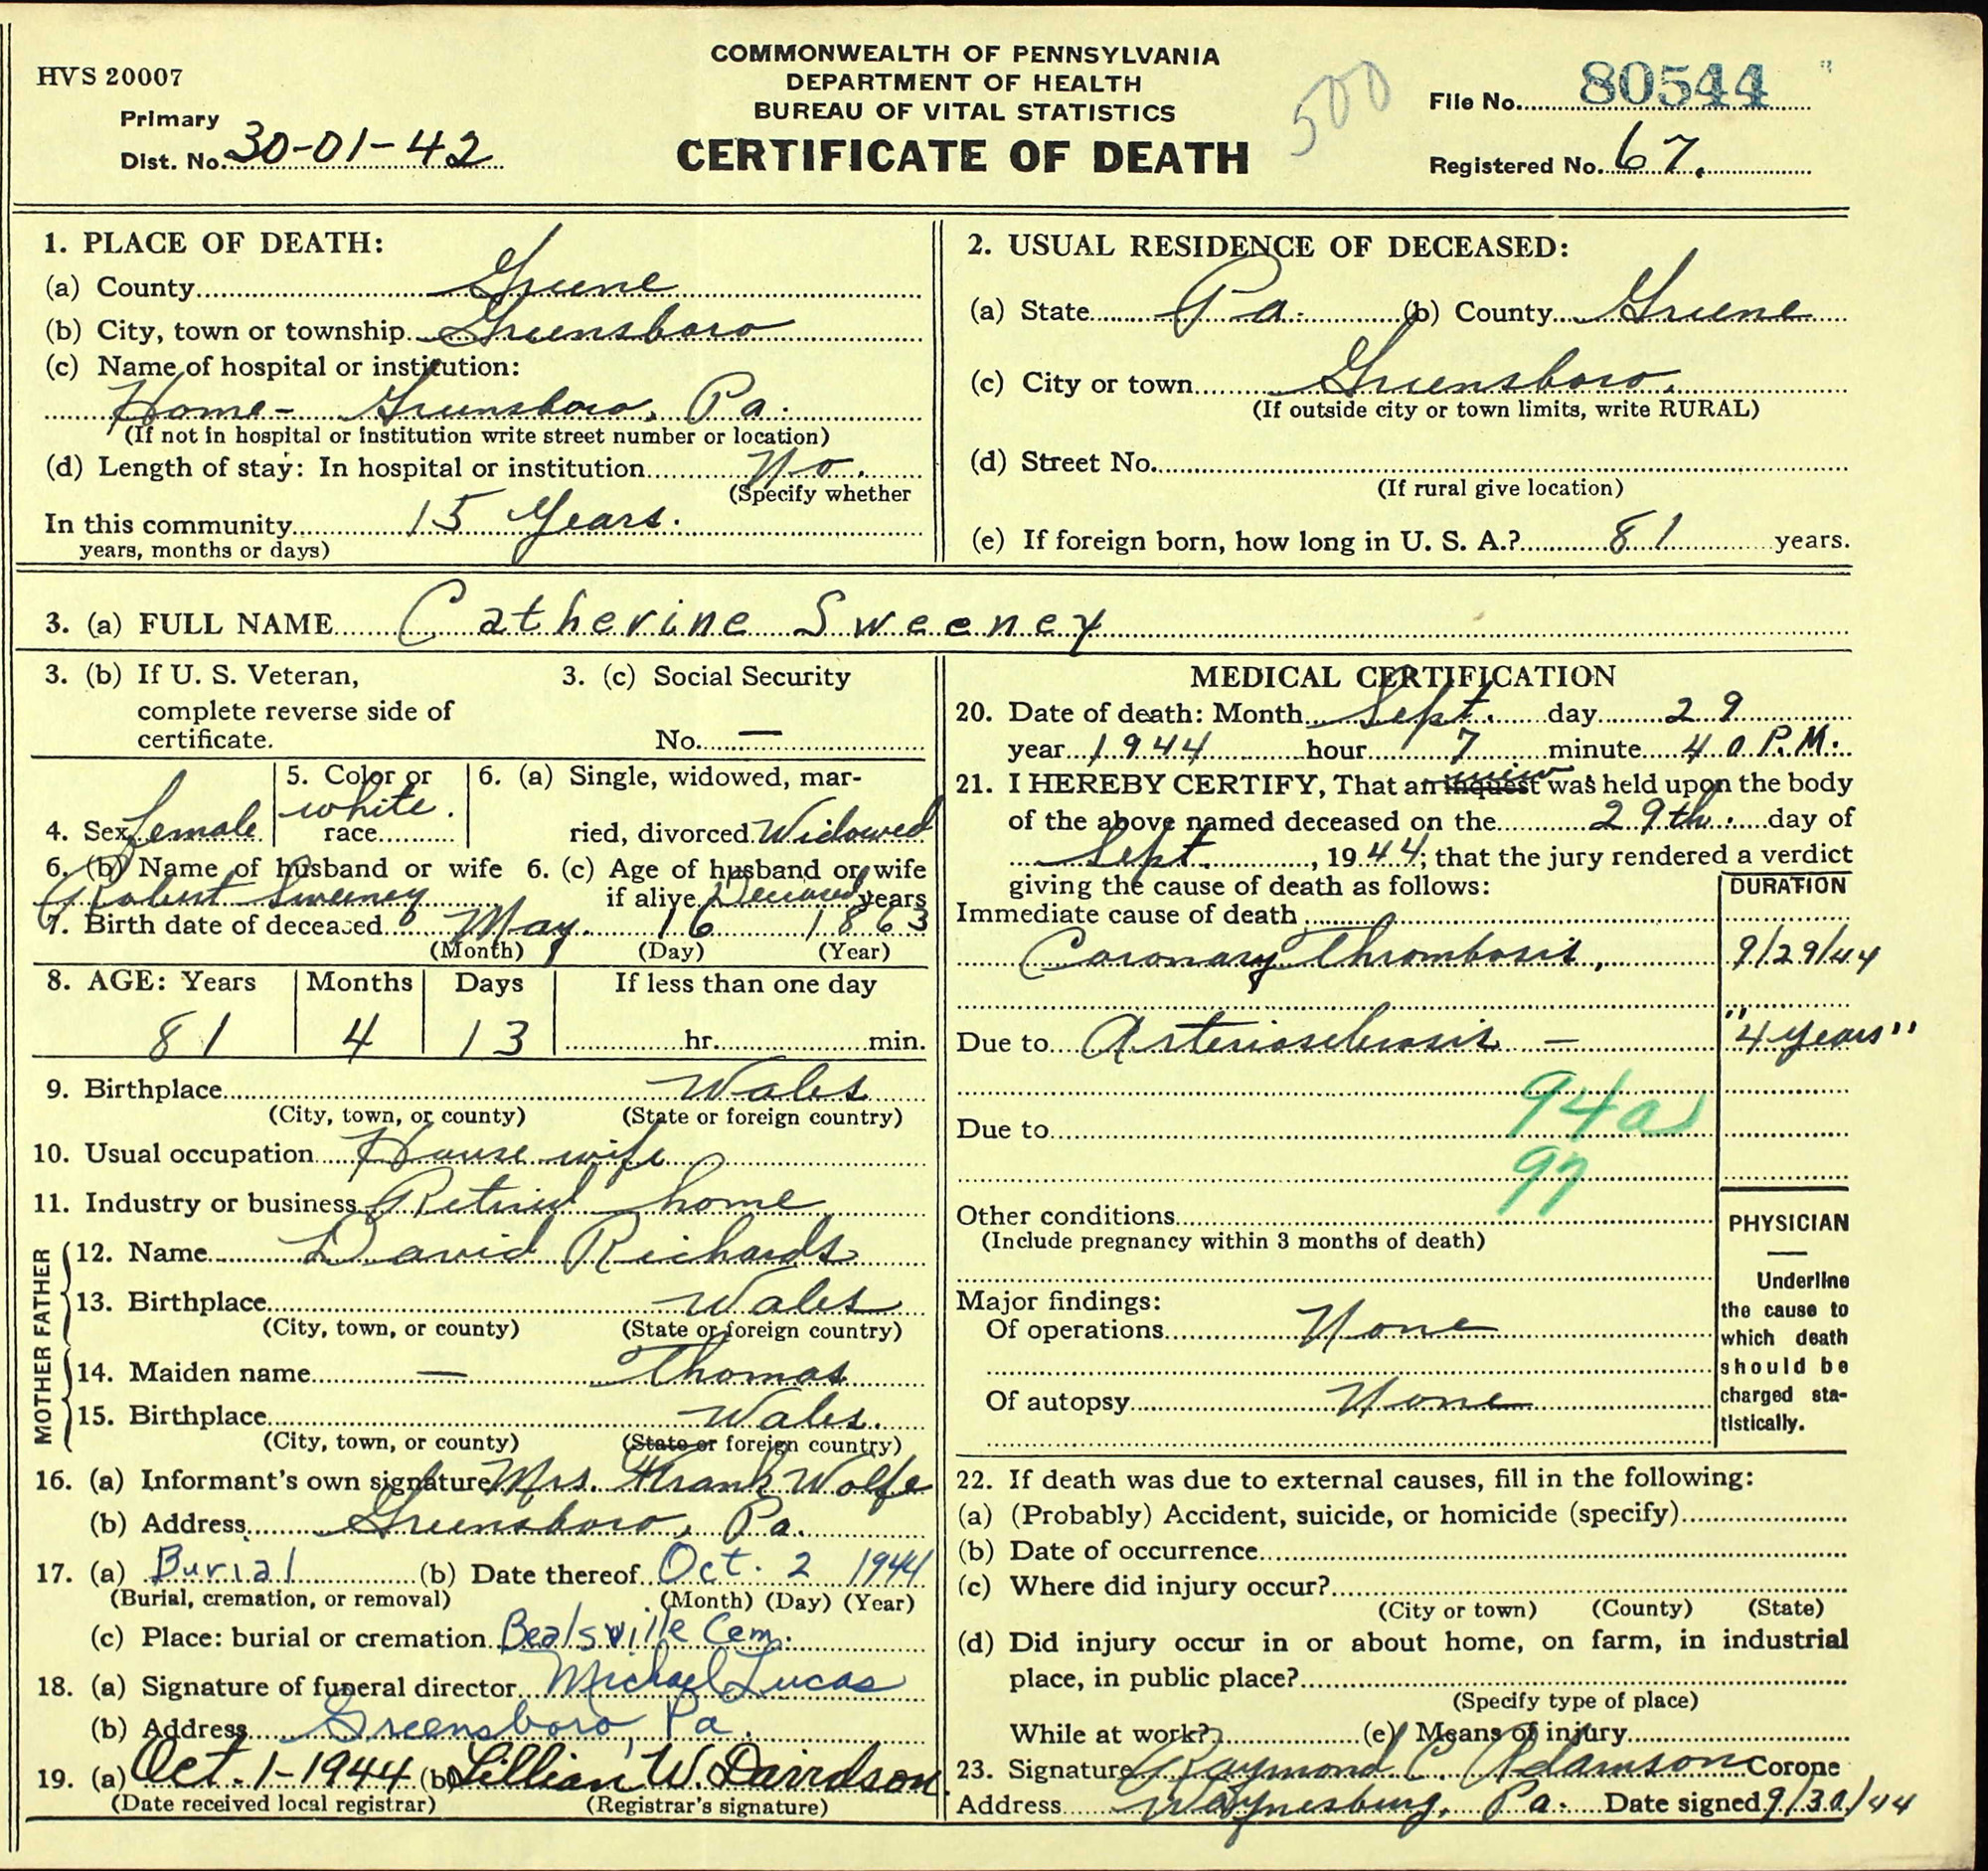 HVS 20007
COMMONWEALTH OF PENNSYLVANIA
DEPARTMENT OF HEALTH
BUREAU OF VITAL STATISTICS
CERTIFICATE OF DEATH
Primary
Dist. No. 30-01-42
500
File No. 80544
Registered No. 67.
1. PLACE OF DEATH:
(a) County Greene
(b) City, town or township Greensboro
(c) Name of hospital or institution:
Home - Greensboro, Pa.
(If not in hospital or institution write street number or location)
(d) Length of stay: In hospital or institution No.
(Specify whether
In this community 15 Years.
years, months or days)
2. USUAL RESIDENCE OF DECEASED:
(a) State Pa. (b) County Greene
(c) City or town Greensboro.
(If outside city or town limits, write RURAL)
(d) Street No.
(If rural give location)
(e) If foreign born, how long in U. S. A.? 81 years.
3. (a) FULL NAME Catherine Sweeney
3. (b) If U. S. Veteran,
complete reverse side of
certificate.
3. (c) Social Security
No. —
4. Sex female
5. Color or
race white.
6. (a) Single, widowed, mar-
ried, divorced Widowed
6. (b) Name of husband or wife
Robert Sweeney
6. (c) Age of husband or wife
if alive Deceased years
7. Birth date of deceased May 16 1863
(Month) (Day) (Year)
8. AGE: Years Months Days If less than one day
81 4 13 hr. min.
9. Birthplace Wales
(City, town, or county) (State or foreign country)
10. Usual occupation Housewife
11. Industry or business Retired home
FATHER
12. Name David Richards
13. Birthplace Wales
(City, town, or county) (State or foreign country)
MOTHER
14. Maiden name — Thomas
15. Birthplace Wales.
(City, town, or county) (State or foreign country)
16. (a) Informant's own signature Mrs. Frank Wolfe
(b) Address Greensboro, Pa.
17. (a) Burial (b) Date thereof Oct. 2 1944
(Burial, cremation, or removal) (Month) (Day) (Year)
(c) Place: burial or cremation Bealsville Cem.
18. (a) Signature of funeral director Michael Lucas
(b) Address Greensboro, Pa.
19. (a) Oct. 1-1944 (b) Lillian W. Davidson.
(Date received local registrar) (Registrar's signature)
MEDICAL CERTIFICATION
20. Date of death: Month Sept. day 29
year 1944 hour 7 minute 40 P.M.
21. I HEREBY CERTIFY, That an inquest view was held upon the body
of the above named deceased on the 29th. day of
Sept., 1944; that the jury rendered a verdict
giving the cause of death as follows:
DURATION
Immediate cause of death
Coronary Thrombosis, 9/29/44
Due to Arteriosclerosis - "4 years"
94a
Due to
97
Other conditions
(Include pregnancy within 3 months of death)
Major findings:
Of operations None
Of autopsy None
PHYSICIAN
—
Underline
the cause to
which death
should be
charged sta-
tistically.
22. If death was due to external causes, fill in the following:
(a) (Probably) Accident, suicide, or homicide (specify)
(b) Date of occurrence
(c) Where did injury occur?
(City or town) (County) (State)
(d) Did injury occur in or about home, on farm, in industrial
place, in public place?
(Specify type of place)
While at work? (e) Means of injury
23. Signature Raymond C. Adamson Corone
Address Waynesburg, Pa. Date signed 9/30/44